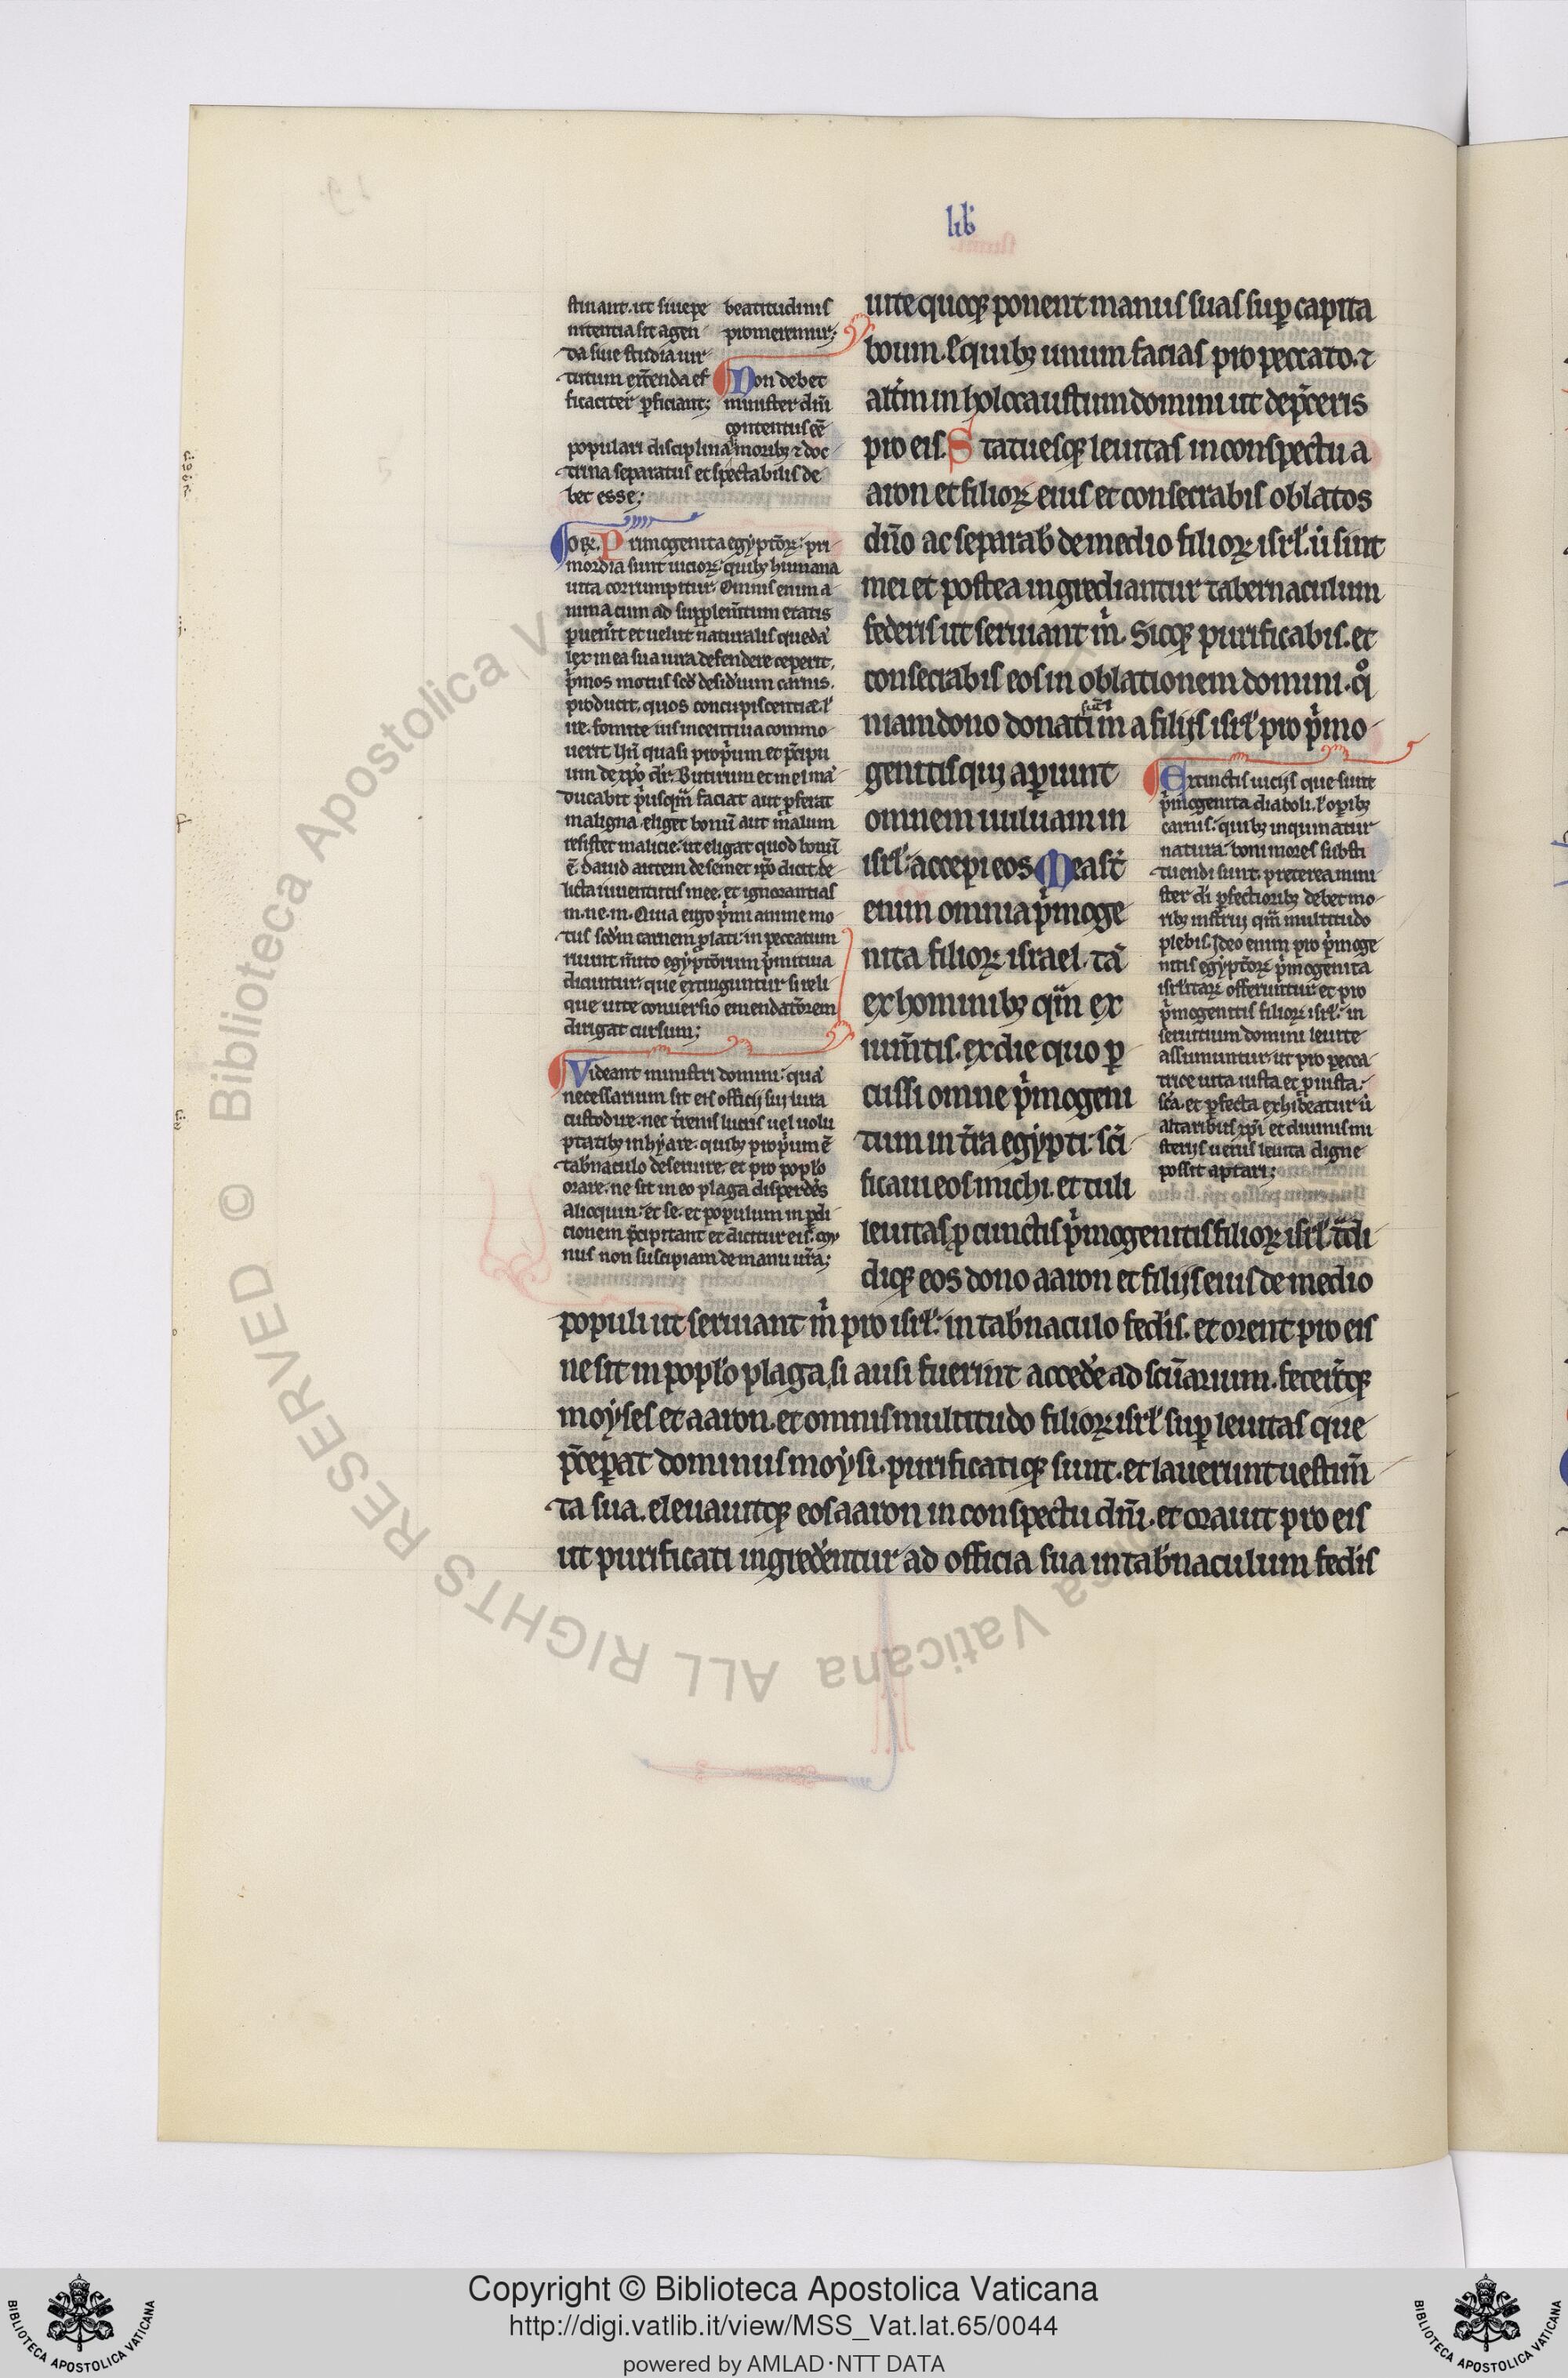 lib'
stinant. ut siue pe
nitentia sit agen
da siue studia uir
tutum exercenda ef
ficaciter p̱ficiant;
beatitudinis
promeremur;
Non debet
minister dñi
contentus eẽ
populari disciplina moribꝫ ⁊ doc
trina separatus et spectabilis de
bet esse;
Primogenita egyptoꝝ: pri
mordia sunt uicioꝝ: quibꝫ humana
uita corrumpitur. Omnis enim a
nima cum ad supplem̃tum etatis
ꝑuen̾it et uelut naturalis quedã
lex in ea sua iura defendere ceperit.
p̾mos motus scd̾ desid̾ium carnis.
producit. quos concupiscentiæ.
ue. fomite uis incentiua commo
uerit. hñ quasi prop̾um et p̃cipu
um de xp̃o dr̃. Butirum et mel mã
ducabit p̾usq̃m faciat aut ꝓferat
maligna eliget bonũ aut malum
resistet malicie. ut eligat quod bonũ
ẽ. dauid autem de semet ip̃o dicit. de
licta iuuentutis mee. et ignorantias
m. ne. m. Quia ergo p̾mi anime mo
tus scd̃m carnem plati: in peccatum
ruunt m̾ito egyptiorum p̾mitiua
dicuntur. que extinguntur si reli
que uite conuersio emendatiorem
dirigat cursum;
Videant ministri domini: quã
necessarium sit eis officij sui iura
custodire. nec t̾renis lucris uel uolu
ptatibꝫ inhyare. quibꝫ prop̾um ẽ
tab̾naculo deseruire. et pro pop̾lo
orare. ne sit in eo plaga disperdẽs
alioquin: et se. et populum in p̱di
cionem p̃cipitant et dicitur eis.
nus non suscipiam de manu ur̃a;
uite quoqꝫ ponent manus suas sup̱ capita
boum. e quibꝫ unum facias pro peccato. ⁊
alt̾m in holocaustum domini ut dep̾ceris
pro eis. Statuesqꝫ leuitas in conspectu a
aron et filioꝝ eius et consecrabis oblatos
dño ac separab̾ de medio filioꝝ isrl̾. ut sint
mei et postea ingrediantur tabernaculum
federis ut seruiant m̾. Sicqꝫ purificabis. et
consecrabis eos in oblationem domini. qͦ
niam dono donati sũt m̾ a filijs isrl̾ pro p̾mo
genitis qui aperiunt
omnem uuluam in
isrl̾. accepi eos. Mea st̃
enim omnia p̾moge
nita filioꝝ israel. tã
ex hominibꝫ qͣm ex
ium̃tis. ex die quo ꝑ
cussi omne p̾mogeni
tum in t̾ra egypti: sc̃i
ficaui eos michi. et tuli
leuitas ꝓ cunctis p̾mogenitis filioꝝ isrl̾. t̾di
diqꝫ eos dono aaron et filijs eius de medio
populi ut seruiant m̾ pro isrl̾: in tab̾naculo fed̾is. et orent pro eis
ne sit in pop̾lo plaga si ausi fuerint acced̾e ad sc̃uarium. fecer̃tqꝫ
moyses et aaron. et omnis multitudo filioꝝ isrl̾ sup̱ leuitas que
p̃cep̱at dominus moysi. purificatiqꝫ sunt. et lauerunt uestim̃
ta sua. eleuauitqꝫ eos aaron in conspectu dñi. et orauit pro eis
ut purificati ingred̾entur ad officia sua in tab̾naculum fed̾is
Extinctis uicijs que sunt
p̾mogenita diaboli. l̾ op̱ibꝫ
carnis. quibꝫ inquinatur
natura: boni mores substi
tuendi sunt. preterea mini
ster d̾i ꝑfectioribꝫ debet mo
ribꝫ instrui qͣm multitudo
plebis. Ideo enim pro p̾moge
nitis egyptioꝝ p̾mogenita
isrl̾itaꝝ offeruntur et pro
p̾mogenitis filioꝝ isrl̾: in
seruitium domini leuite
assumuntur. ut pro pecca
trice uita iusta et p iusta:
sc̃a. et ꝑfecta exhibeatur. ut
altaribus xp̃i et diuinis mi
sterijs uerus leuita digne
possit aptari;
Copyright © Biblioteca Apostolica Vaticana
http://digi.vatlib.it/view/MSS_Vat.lat.65/0044
powered by AMLAD·NTT DATA
BIBLIOTECA APOSTOLICA VATICANA
BIBLIOTECA APOSTOLICA VATICANA